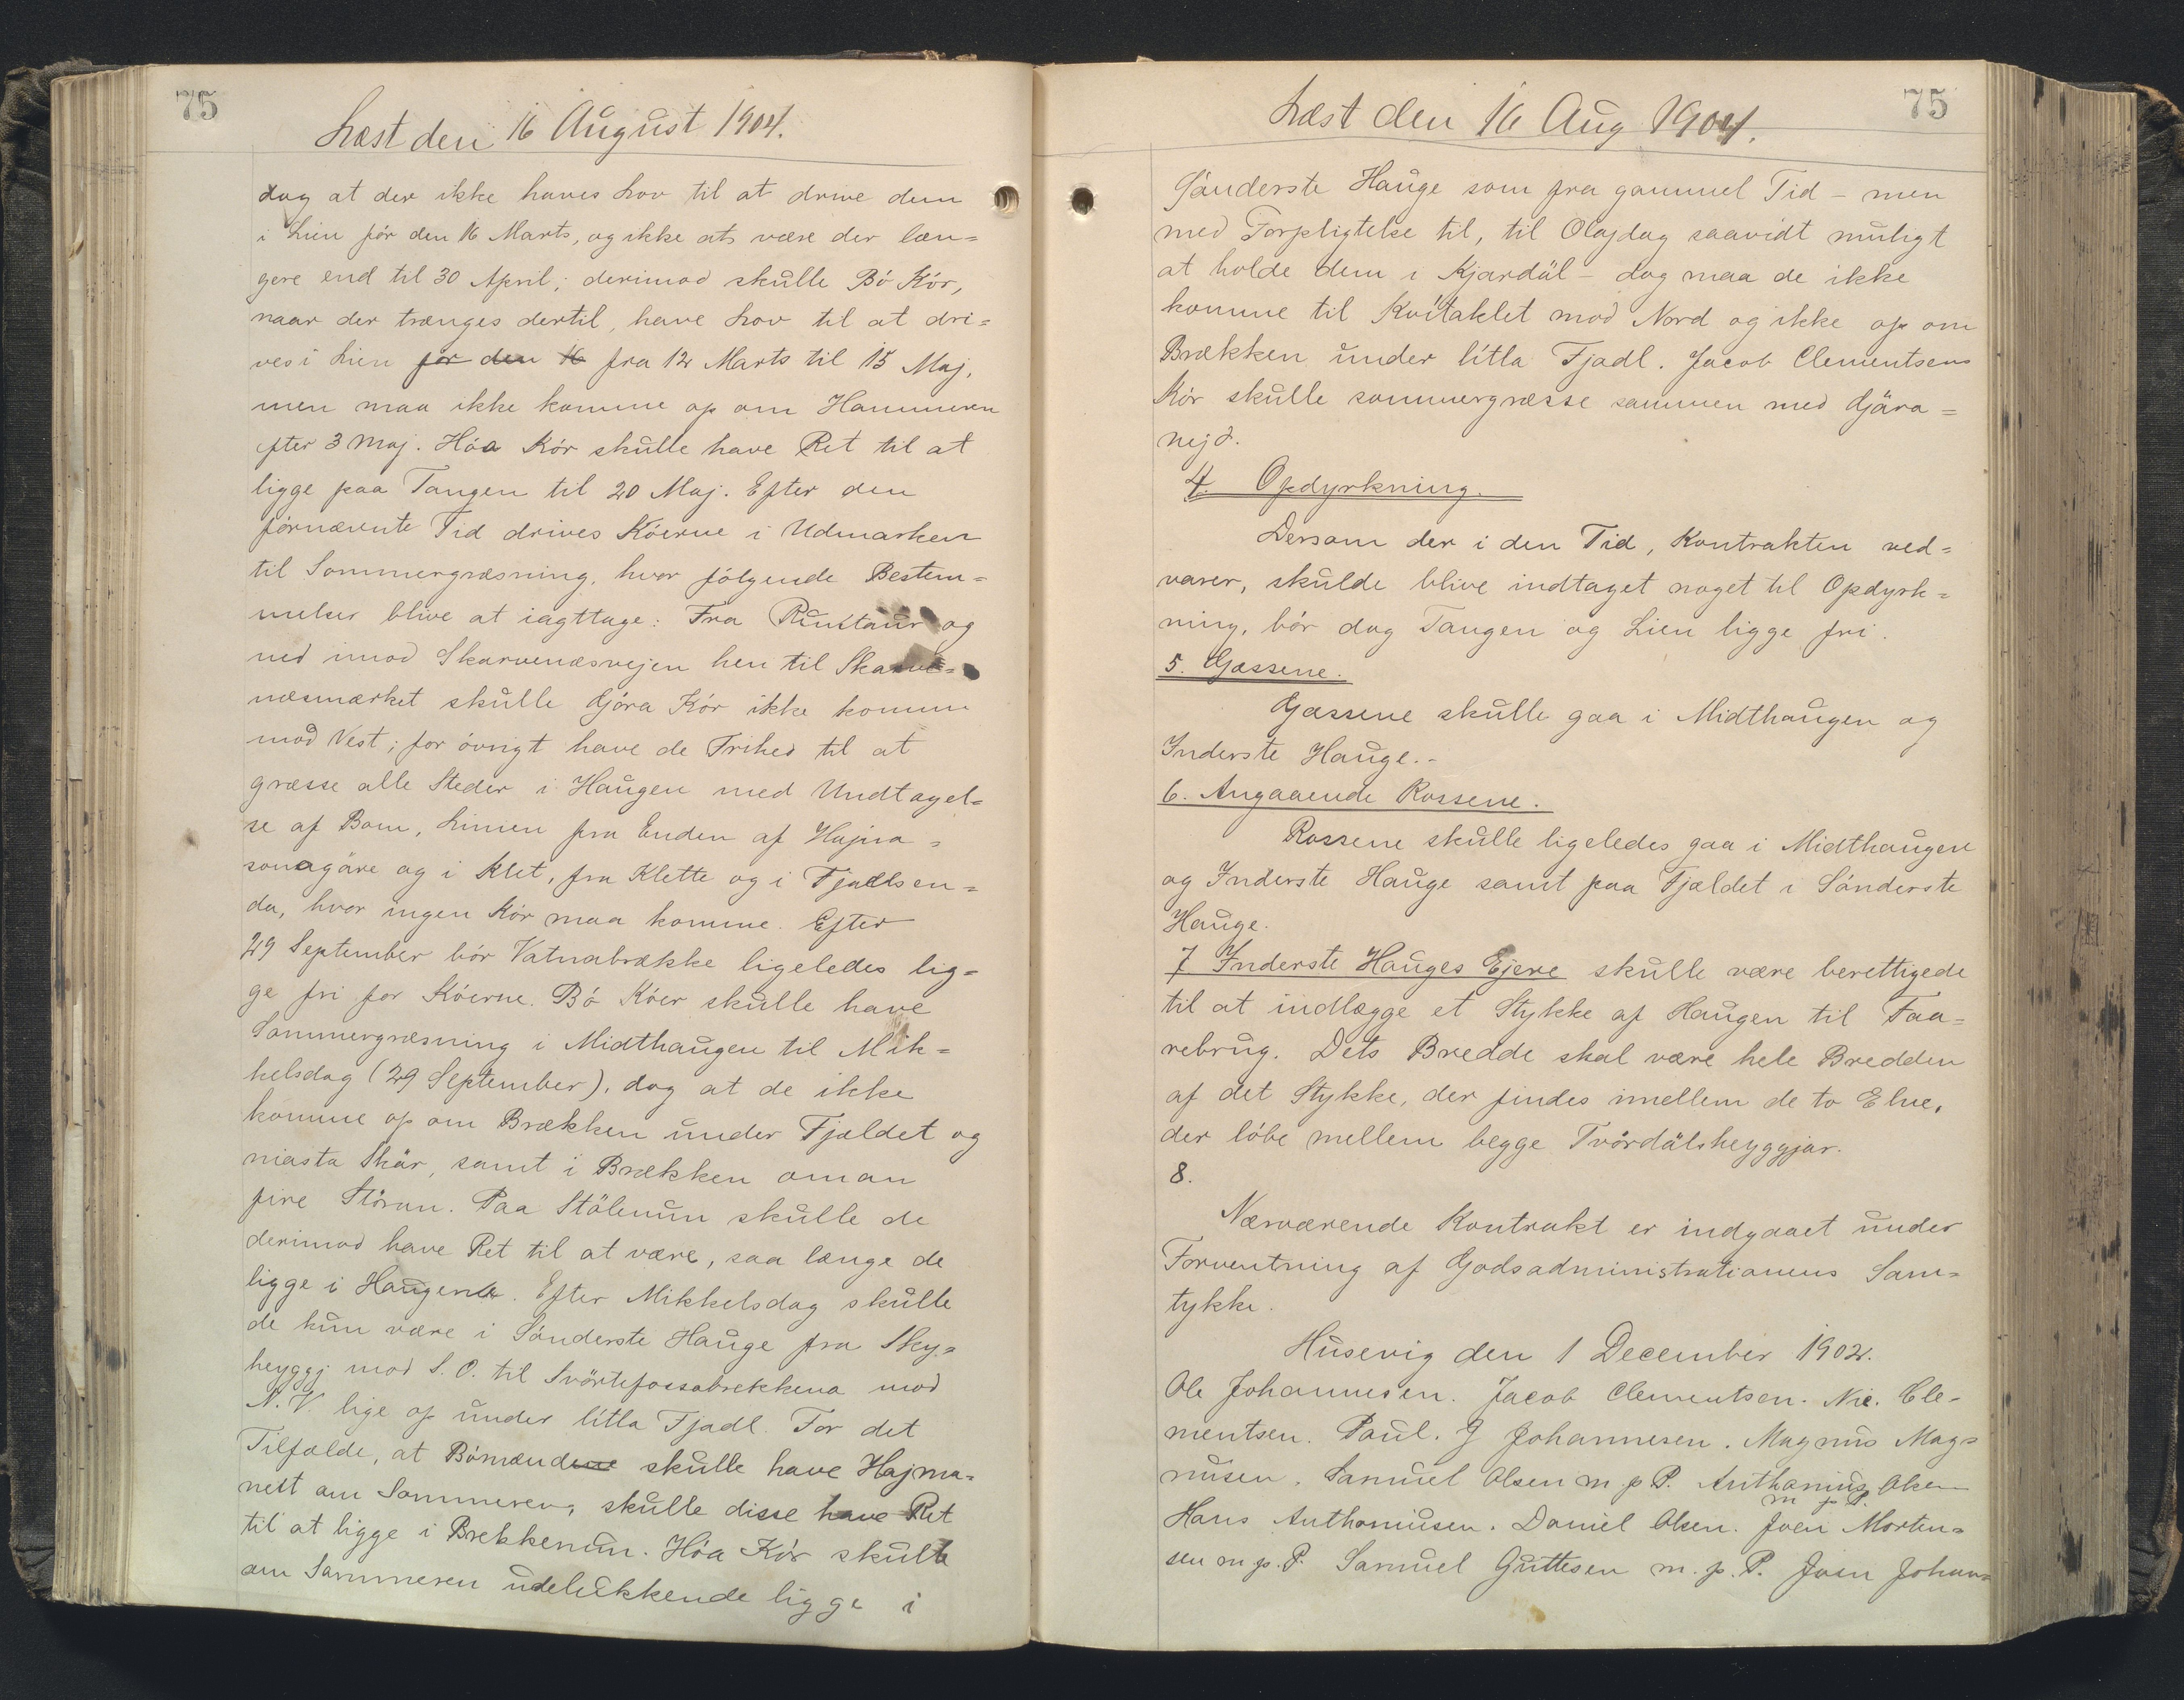 75
Læst den 16 August 1904.
dog at der ikke haves Lov til at drive dem
i Lien før den 16 Marts, og ikke at være der læn=
gere end til 30 April; derimod skulle Bø Kör,
naar der trænges dertil, have Lov til at dri=
ves i Lien før den 16 fra 12 Marts til 15 Maj,
men maa ikke komme op om Hammeren
efter 3 Maj. Hóa Kör skulle have Ret til at
ligge paa Tangen til 20 Maj. Efter den
førnævnte Tid drives Køerne i Udmarken
til Sommergræsning, hvor følgende Bestem=
melser blive at iagttage: Fra Runstaur og
ned imod Skarvenæsvejen hen til Skarve=
næsmærket skulle Gjóra Kör ikke komme
mod Vest; for øvrigt have de Frihed til at
græsse alle Steder i Haugen med Undtagel=
se af Bom, Linien fra Enden af Hajna=
sonagäre og i Klet, fra Klette og i Fjallsen=
da, hvor ingen Kör maa komme. Efter
29 September bör Vatnabrække ligeledes lig=
ge fri for Köerne. Bø Köer skulle have
Sommergræsning i Midthaugen til Mik=
kelsdag (29 September), dog at de ikke
komme op om Brækken under Fjældet og
niasta Skär, samt i Brækken oman
fire Störan. Paa Stölenun skulle de
derimod have Ret til at være, saa længe de
ligge i Haugen. Efter Mikkelsdag skulle
de kun være i Sønderste Hauge fra Sky=
heyggj mod S. O. til Svörtefossabrekkena mod
N. V. lige op under litla Fjadl. For det
Tilfælde, at Bømændene skulle have Hajma=
nett om Sommeren, skulle disse have Ret
til at ligge i Brekkenun. Hóa Kör skulle
om Sommeren udelukkende ligge i
75
Læst den 16 Aug 1904.
Sønderste Hauge som fra gammel Tid - men
med Forpligtelse til, til Olajdag saavidt muligt
at holde dem i Kjardäl - dog maa de ikke
komme til Kvitaklet mod Nord og ikke op om
Brækken under litla Fjadl. Jacob Clementsens
Kör skulle sommergræsse sammen med Gjära=
nejd.
4. Opdyrkning.
Dersom der i den Tid, Kontrakten ved=
varer, skulde blive indtaget noget til Opdyrk=
ning, bör dog Tangen og Lien ligge fri.
5. Gæssene.
Gæssene skulle gaa i Midthaugen og
Inderste Hauge.-
6. Angaaende Rossene.
Rossene skulle ligeledes gaa i Midthaugen
og Inderste Hauge samt paa Fjældet i Sønderste
Hauge.
7 Inderste Hauges Ejere skulle være berettigede
til at indlægge et Stykke af Haugen til Faa=
rebrug. Dets Bredde skal være hele Bredden
af det Stykke, der findes imellem de to Elve,
der löbe mellem begge Tvördälsheyggjar.
8.
Nærværende Kontrakt er indgaaet under
Forventning af Godsadministrationens Sam=
tykke.
Husevig den 1 December 1902.
Ole Johannesen. Jacob Clementsen. Nic. Cle-
mentsen. Paul. J Johannesen. Magnus Mag=
nusen. Samuel Olsen m p P. Anthonius Olsen
m p P.
Hans Anthoniusen. Daniel Olsen. Joen Morten=
sen m. p. P. Samuel Guttesen m. p. P. Joen Johan=